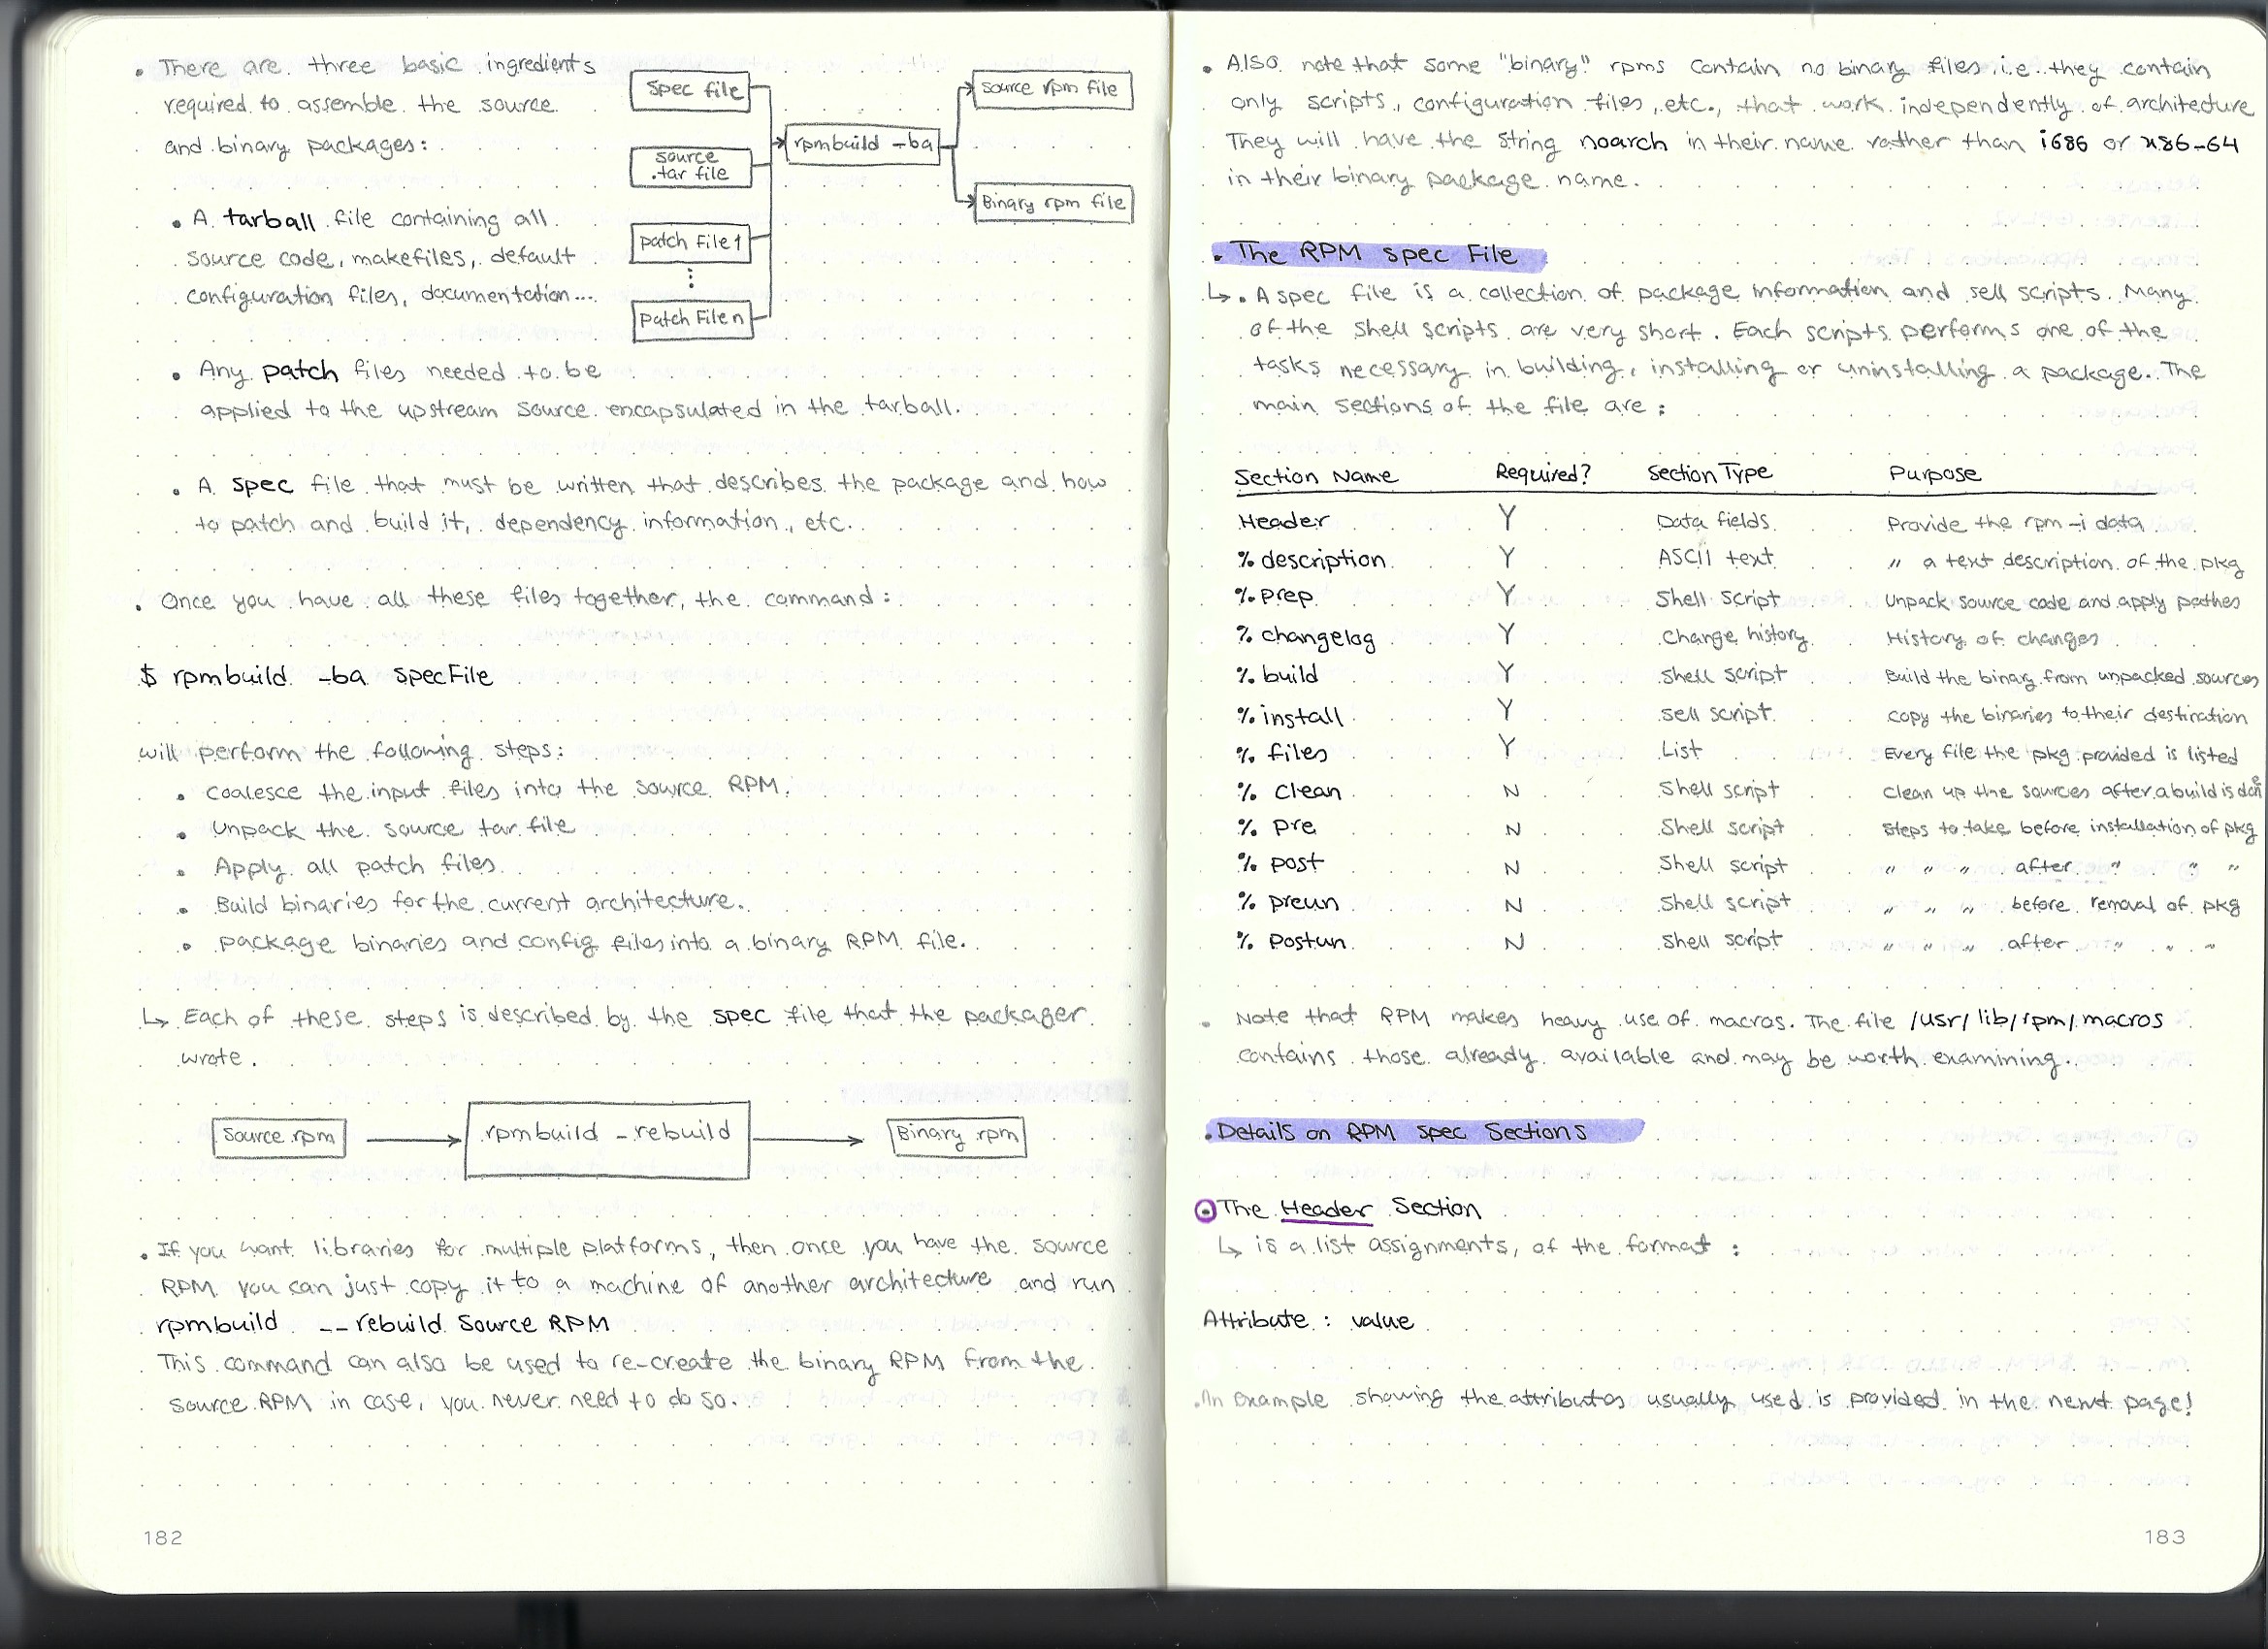 • There are three basic ingredients
required to assemble the source
and binary packages:
spec file
source
.tar file
patch file 1
patch File n
rpmbuild -ba
source rpm file
Binary rpm file
• A tarball file containing all
source code, makefiles, default
configuration files, documentation...
• Any patch files needed to be
applied to the upstream source encapsulated in the tarball.
• A spec file that must be written that describes the package and how
to patch and build it, dependency information, etc.
• Once you have all these files together, the command:
$ rpmbuild -ba specFile
will perform the following steps:
• coalesce the input files into the source RPM.
• Unpack the source tar file
• Apply all patch files
• Build binaries for the current architecture.
• package binaries and config files into a binary RPM file.
↳ Each of these steps is described by the spec file that the packager
wrote.
Source rpm
rpmbuild -rebuild
Binary rpm
• If you want libraries for multiple platforms, then once you have the source
RPM you can just copy it to a machine of another architecture and run
rpmbuild --rebuild Source RPM
This command can also be used to re-create the binary RPM from the
source RPM in case, you never need to do so.
182
• Also note that some "binary" rpms contain no binary files i.e. they contain
only scripts, configuration files, etc., that work independently of architecture
They will have the string noarch in their name rather than i686 or x86-64
in their binary package name.
• The RPM spec File
↳ • A spec file is a collection of package information and sell scripts. Many
of the shell scripts are very short. Each scripts performs one of the
tasks necessary in building, installing or uninstalling a package. The
main sections of the file are:
Section Name Required? Section Type Purpose
Header Y Data fields Provide the rpm -i data
% description Y ASCII text " a text description of the pkg
% prep Y Shell script Unpack source code and apply pathes
% changelog Y Change history History of changes
% build Y Shell script Build the binary from unpacked sources
% install Y sell script copy the binaries to their destination
% files Y List Every file the pkg provided is listed
% clean N Shell script clean up the sources after a build is done
% pre N Shell script Steps to take before installation of pkg
% post N Shell script " " " after " " "
% preun N Shell script " " " before removal of pkg
% postun N Shell script " " " after " " "
• Note that RPM makes heavy use of macros. The file /usr/lib/rpm/macros
contains those already available and may be worth examining.
• Details on RPM spec Sections
⊙ The Header Section
↳ is a list assignments, of the format :
Attribute : value
• An example showing the attributes usually used is provided in the next page!
183